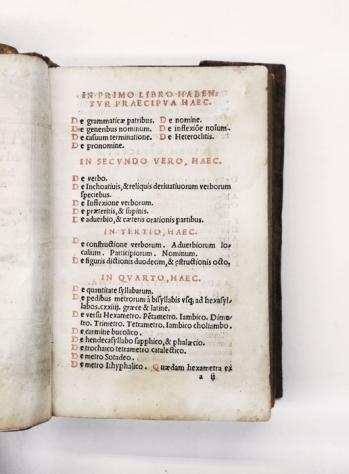 IN PRIMO LIBRO HABEN-
TVR PRAECIPVA HAEC.
De grammaticæ partibus. De nomine.
De generibus nominum. De inflexiõe nominum.
De casuum terminatione. De Heteroclitis.
De pronomine.
IN SECVNDO VERO, HAEC.
De verbo.
De Inchoatiuis, & reliquis deriuatiuorum verborum
speciebus.
De Inflexione verborum.
De præteritis, & supinis.
De aduerbio, & cæteris orationis partibus.
IN TERTIO, HAEC.
De constructione verborum. Aduerbiorum lo-
calium. Participiorum. Nominum.
De figuris dictionis duodecim, & cõstructionis octo.
IN QVARTO, HAEC.
De quantitate syllabarum.
De pedibus metrorum à bisyllabis vsq; ad hexasyl-
labos.cxxiiij. græce & latine.
De versu Hexametro. Pẽtametro. Iambico. Dime-
tro. Trimetro. Tetrametro. Iambico choliambo.
De carmine bucolico.
De hendecasyllabo sapphico, & phalæcio.
De trochaico tetrametro catalectico.
De metro Sotadeo.
De metro Ithyphalico. Quædam hexametra ex
a ij